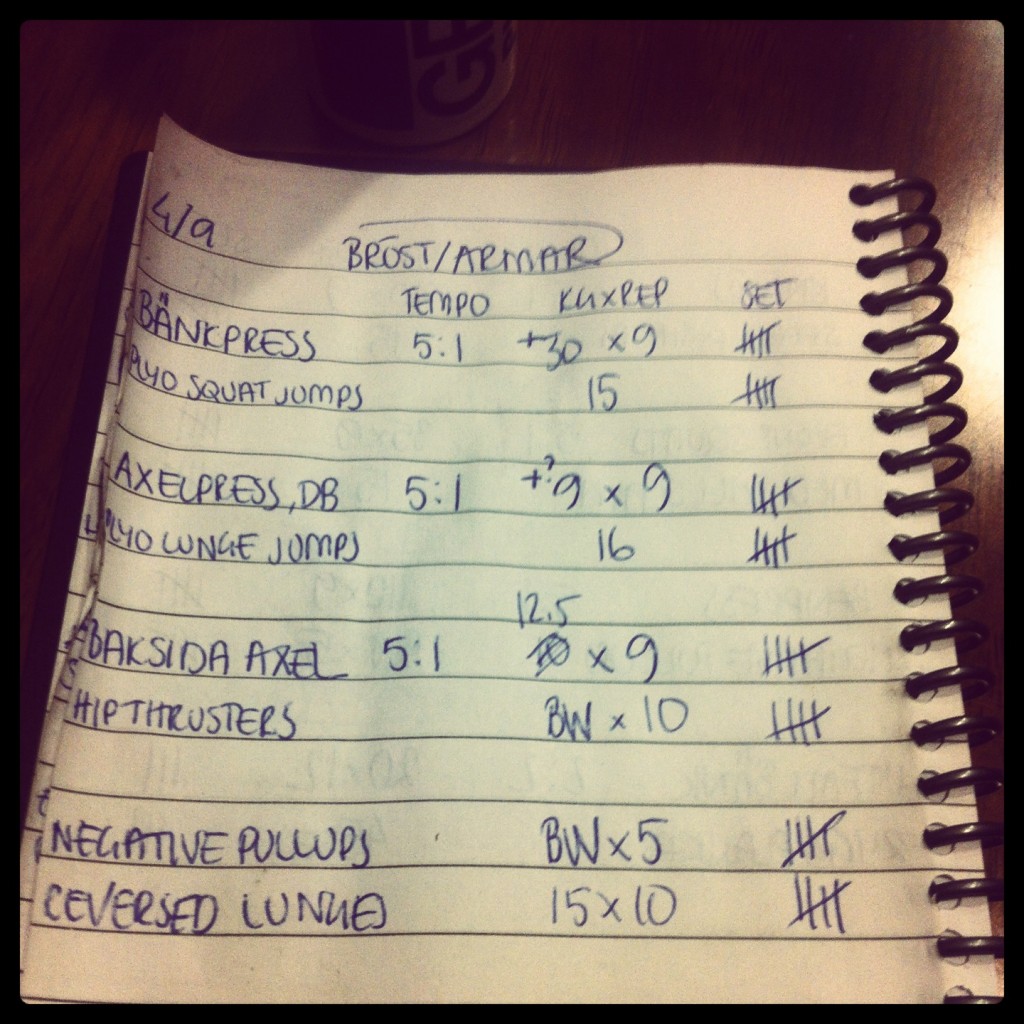 GE
4/9
BRÖST/ARMAR
TEMPO KGXREP SET
BÄNKPRESS 5:1 +30 x 9 ||||
PLYO SQUAT JUMPS 15 ||||
AXELPRESS, DB 5:1 +?9 x 9 ||||
PLYO LUNGE JUMPS 16 ||||
12.5
BAKSIDA AXEL 5:1 x 9 ||||
HIP THRUSTERS BW x 10 ||||
NEGATIVE PULLUPS BW x 5 ||||
REVERSED LUNGES 15 x 10 ||||